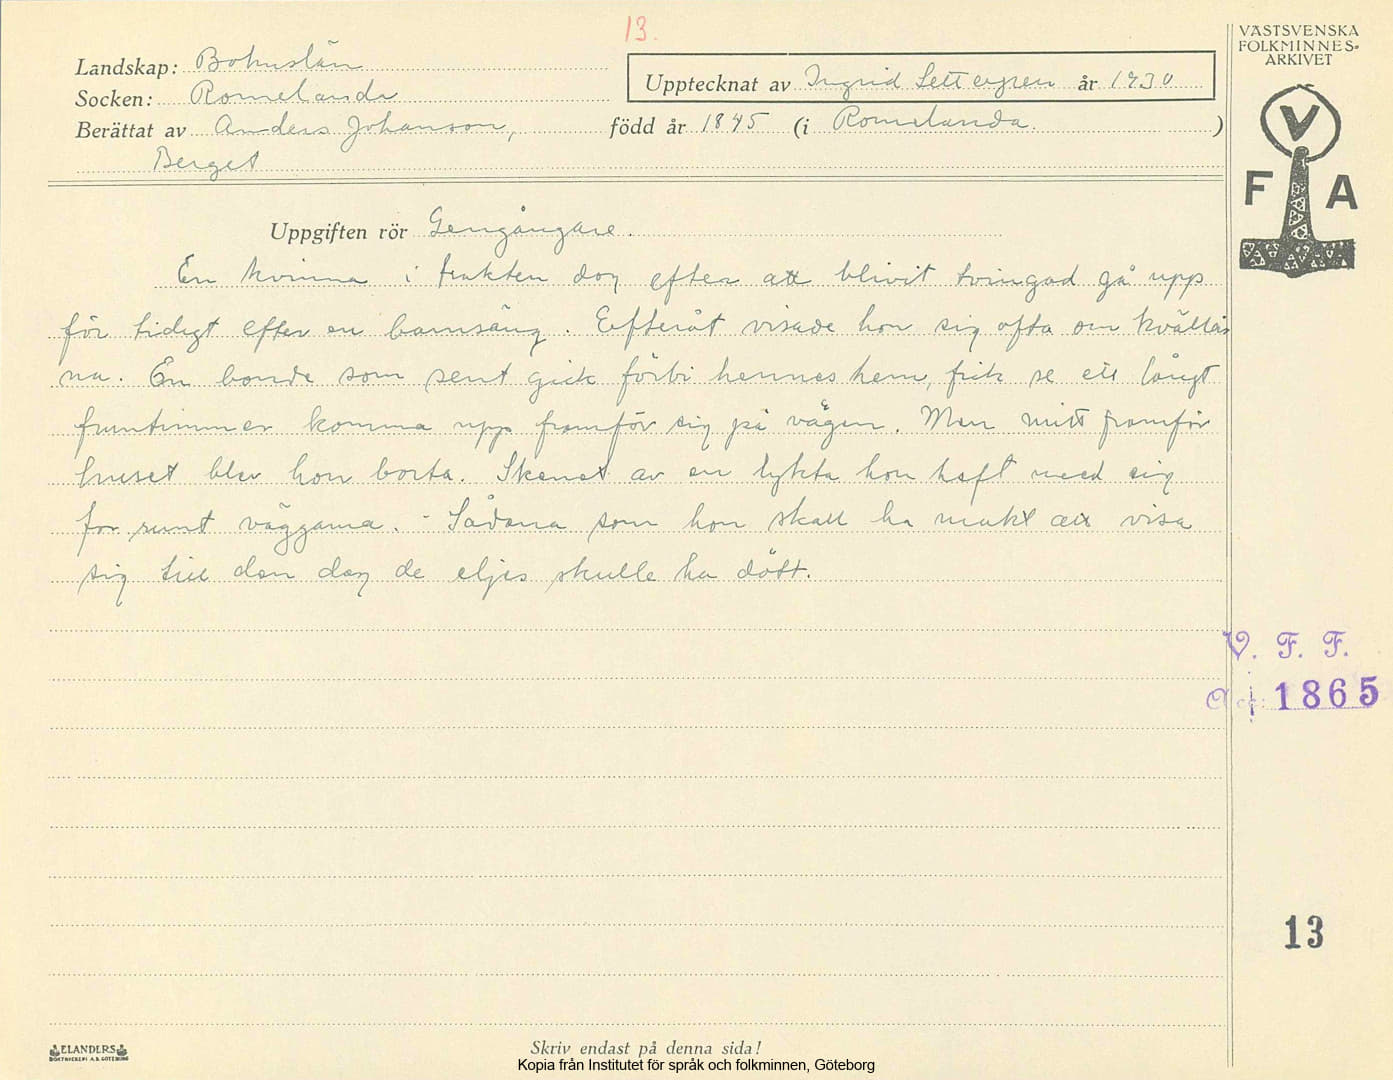 13.
VÄSTSVENSKA
FOLKMINNES-
ARKIVET
Landskap: Bohuslän
Upptecknat av Ingrid Settergren år 1930
Socken: Romelanda
Berättat av Anders Johanson, född år 1845 (i Romelanda.)
Berget
V
F A
Uppgiften rör Gengångare.
En kvinna i trakten dog efter att blivit tvingad gå upp
för tidigt efter en barnsäng. Efteråt visade hon sig ofta om kvällar
na. En bonde som sent gick förbi hennes hem, fick se ett långt
fruntimmer komma upp framför sig på vägen. Men mitt framför
huset blev hon borta. Skenet av en lykta hon haft med sig
for runt väggarna. - Sådana som hon skall ha makt att visa
sig till den dag de eljes skulle ha dött.
V. F. F.
Acc: 1865
13
ELANDERS
BOKTRYCKERI A.B. GÖTEBORG
Skriv endast på denna sida!
Kopia från Institutet för språk och folkminnen, Göteborg